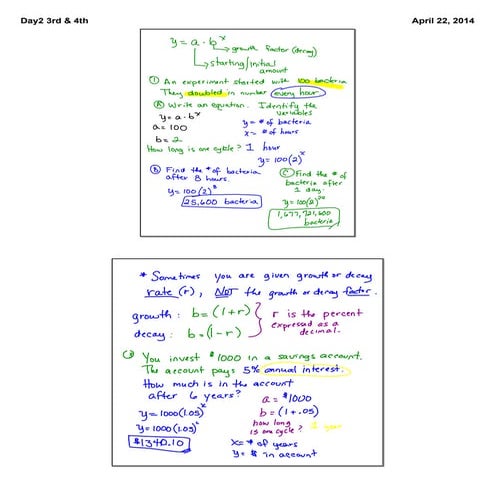 Day2 3rd & 4th
April 22, 2014
y = a · b^x
growth factor (decay)
starting/initial
amount
① An experiment started with 100 bacteria
They doubled in number every hour
Ⓐ Write an equation. Identify the
variables
y = a · b^x
y = # of bacteria
a = 100
x = # of hours
b = 2
How long is one cycle? 1 hour
y = 100(2)^x
Ⓑ Find the # of bacteria
after 8 hours.
y = 100(2)^8
25,600 bacteria
Ⓒ Find the # of
bacteria after
1 day.
y = 100(2)^24
1,677,721,600
bacteria
* Sometimes you are given growth or decay
rate (r), NOT the growth or decay factor.
growth: b = (1+r)
decay: b = (1-r)
r is the percent
expressed as a
decimal.
② You invest $1000 in a savings account.
The account pays 5% annual interest.
How much is in the account
after 6 years?
a = $1000
y = 1000(1.05)^x
b = (1+.05)
y = 1000(1.05)^6
how long
is one cycle? 1 year
$1340.10
x = # of years
y = $ in account